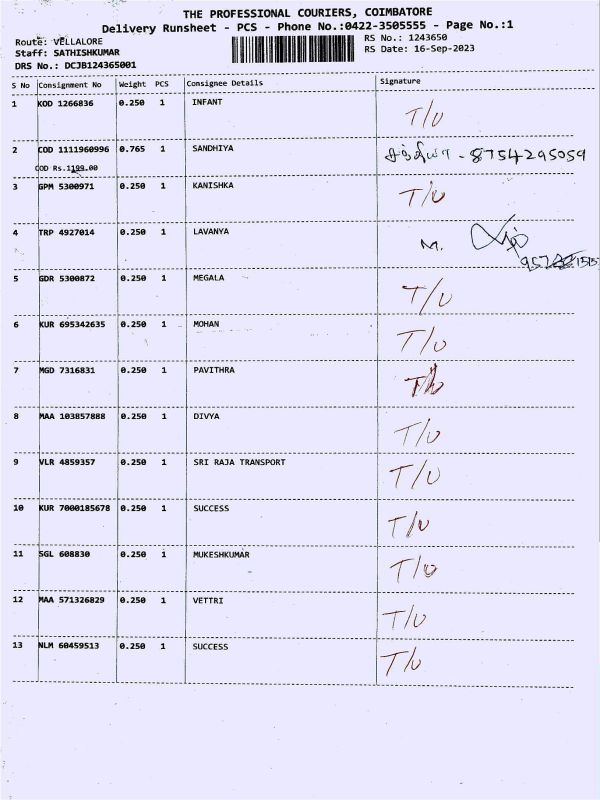 THE PROFESSIONAL COURIERS, COIMBATORE
Delivery Runsheet - PCS - Phone No.:0422-3505555 - Page No.:1
Route: VELLALORE RS No.: 1243650
Staff: SATHISHKUMAR RS Date: 16-Sep-2023
DRS No.: DCJB124365001
S No Consignment No Weight PCS Consignee Details Signature
1 KOD 1266836 0.250 1 INFANT T/U
2 COD 1111960996 0.765 1 SANDHIYA சந்தியா - 8754295059
COD Rs.1199.00
3 GPM 5300971 0.250 1 KANISHKA T/U
4 TRP 4927014 0.250 1 LAVANYA M.
5 GDR 5300872 0.250 1 MEGALA T/U
6 KUR 695342635 0.250 1 MOHAN T/U
7 MGD 7316831 0.250 1 PAVITHRA T/U
8 MAA 103857888 0.250 1 DIVYA T/U
9 VLR 4859357 0.250 1 SRI RAJA TRANSPORT T/U
10 KUR 7000185678 0.250 1 SUCCESS T/U
11 SGL 608830 0.250 1 MUKESHKUMAR T/U
12 MAA 571326829 0.250 1 VETTRI T/U
13 NLM 60459513 0.250 1 SUCCESS T/U